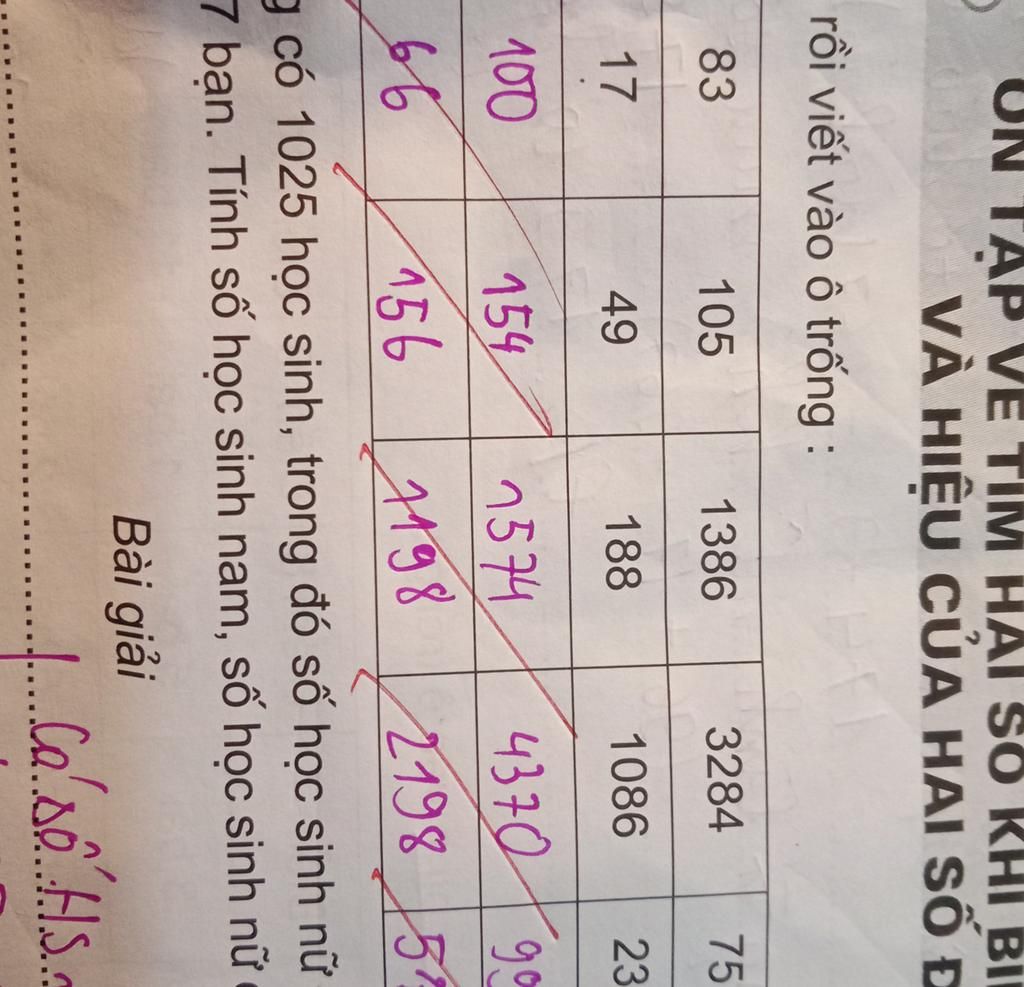 ÔN TẬP VỀ TÌM HAI SỐ KHI BI
VÀ HIỆU CỦA HAI SỐ Đ
rồi viết vào ô trống :
83 105 1386 3284 75
17 49 188 1086 23
100 154 1574 4370 99
66 156 1198 2198
g có 1025 học sinh, trong đó số học sinh nữ
7 bạn. Tính số học sinh nam, số học sinh nữ
Bài giải
Cả số HS